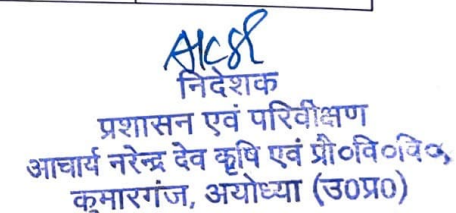 निदेशक
प्रशासन एवं परिवीक्षण
आचार्य नरेन्द्र देव कृषि एवं प्रौ०वि०वि०,
कुमारगंज, अयोध्या (उ०प्र०)